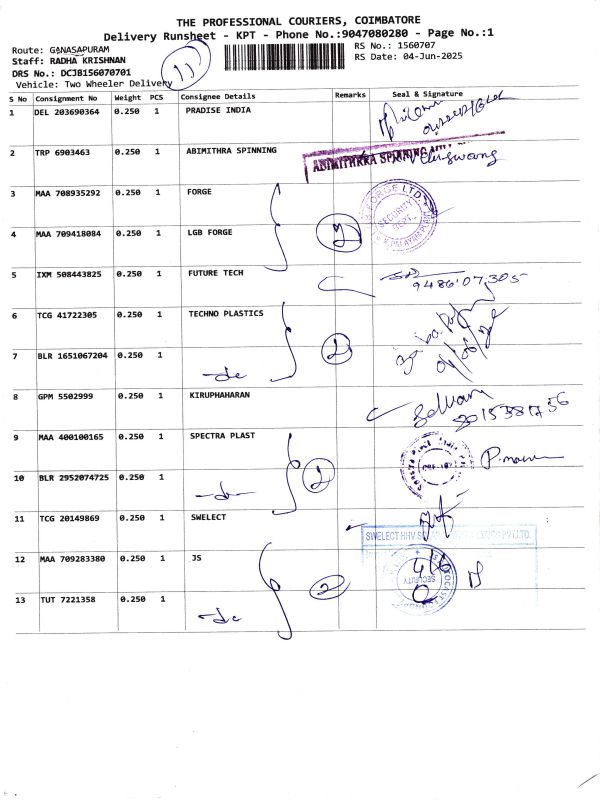 THE PROFESSIONAL COURIERS, COIMBATORE
Delivery Runsheet - KPT - Phone No.:9047080280 - Page No.:1
Route: GANASAPURAM
RS No.: 1560707
Staff: RADHA KRISHNAN
RS Date: 04-Jun-2025
DRS No.: DCJB156070701
Vehicle: Two Wheeler Delivery
S No Consignment No Weight PCS Consignee Details Remarks Seal & Signature
1 DEL 203690364 0.250 1 PRADISE INDIA
2 TRP 6903463 0.250 1 ABIMITHRA SPINNING
3 MAA 708935292 0.250 1 FORGE
SECURITY DEPT.
4 MAA 709418084 0.250 1 LGB FORGE 2
5 IXM 508443825 0.250 1 FUTURE TECH 9486'07,305
6 TCG 41722305 0.250 1 TECHNO PLASTICS
2
7 BLR 1651067204 0.250 1 -do-
8 GPM 5502999 0.250 1 KIRUPHAHARAN Selvan
9 MAA 400100165 0.250 1 SPECTRA PLAST
2
10 BLR 2952074725 0.250 1 -do-
11 TCG 20149869 0.250 1 SWELECT
SWELECT HHV PVT LTD.
12 MAA 709283380 0.250 1 JS 4/6
SECURITY
2
13 TUT 7221358 0.250 1 -do-